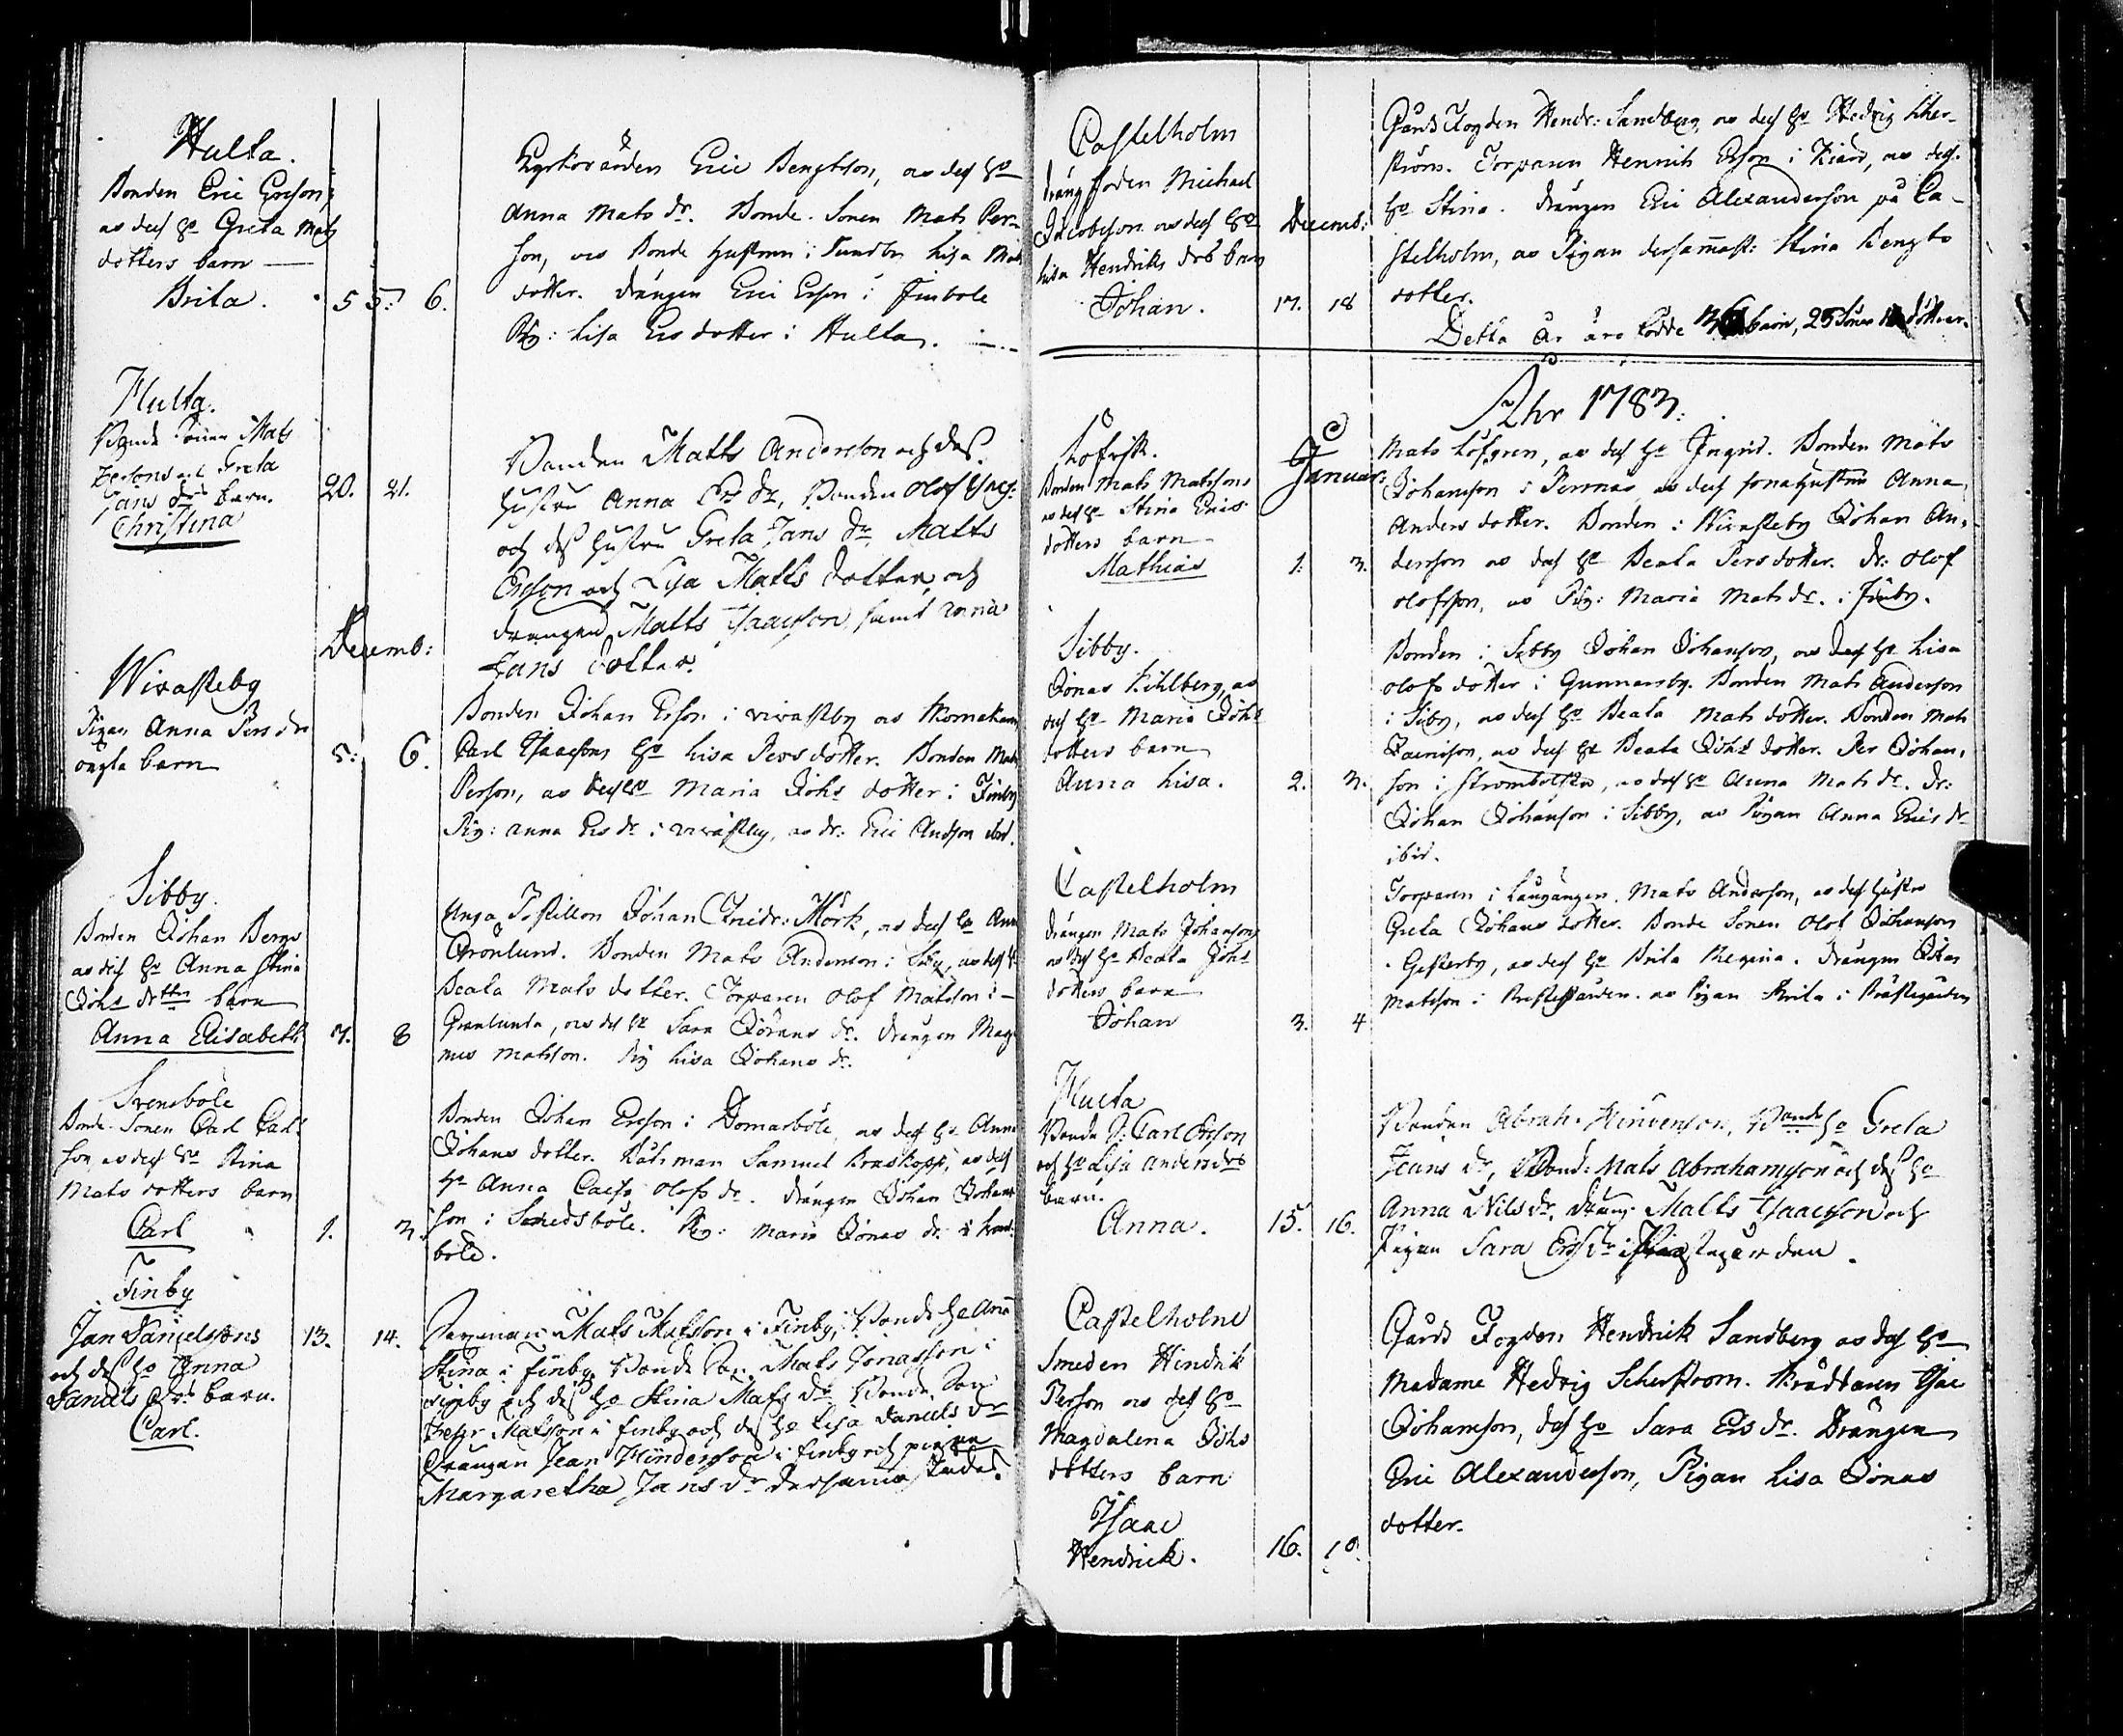 Hulta.
Bonden Eric Ersons
as dess hu Greta Mats
dotters barn
Brita. 5 5: 6.
Kyrkovärden Eric Bengtson, as dess hu
Anna Mats dr. Bonde Sonen Mats Per-
son, as Bonde hustrun i Sundby Lisa Mats
dotter. Drängen Eric Erson i Finbole
Pig: Lisa Ersdotter i Hulta.
Hulta.
Bonde Sonen Mats
Persons och Greta
Jans drs barn.
Christina
20. 21.
Bonden Matts Andersson och dess
hustru Anna Ers dr, Bonden Olof
och dess hustru Greta Jans dr, Matts
Ersson och Lisa Matts dotter, och
drängen Matts Isaacsson samt Anna
Jans dotter.
Decemb:
Wivasteby
Pigan Anna Pers drs
oägta barn
5: 6.
Bonden Johan Erson i wivastby as
Carl Isaacsons hu Lisa Persdotter. Bonden Mats
Person, as dess hu Maria Johs dotter i Finby
Pig: Anna Ers dr i wivasteby, as dr: Eric Andson ibid.
Sibby.
Bonden Johan Bergs
as dess hu Anna Stina
Johs drtters barn
Anna Elisabeth 7. 8
Unga Postillon Johan Mörk, as dess hu Anna
Grönlund. Bonden Mats Anderson i Siby, as dess hu
Beata Mats dotter. Torparen Olof Matsson i
Grönlunda, as dess hu Sara Görans dr. Drängen Mag-
nus Matsson. Pig Lisa Johans dr.
Svensböle
Bonde Sonen Carl Carls
son as dess hu Stina
Mats dotters barn
Carl 1. 3.
Bonden Johan Ersson i Domarböle, as dess hu Anna
Johans dotter. Båtsman Samuel Braskopp, as dess
hu Anna Cajsa Olofs dr. Drängen Johan Johans
son i Smedsböle. Pig: Maria Jonas dr. i
böle.
Finby
Jan Danielssons
och dess hu Anna
Daniels drs barn.
Carl.
13. 14.
Mats Matsson i Finby, Bonde hu Anna
Stina i Finby, Bonde Son. Mats Jonasson i
Finby och dess hu Stina Mats dr Bonde Son
Pehr Matsson i Finby och dess hu Lisa Daniels dr
Drängen Jean Hindersson i Finby och pigan
Margaretha Jans dr dersammastädes.
Castelholm
Drängsoden Michael
Jacobsson as dess hu
Lisa Hendriks drs barn
Johan.
Decemb:
17. 18
Gårds Fogden Hendr: Sandberg, as dess hu Hedvig Scher-
ström. Torparen Hennrik Erson i Kiärr, as dess
hu Stina. Drängen Eric Alexanderson på Ca-
stelholm, as Pigan dersammast: Stina Bengts
dotter.
Detta år äro födde barn, 25 Söner döttrar.
Åhr 1783:
Januar:
Löfvik.
Bonden Mats Matssons
as dess hu Stina Erics
dotters barn
Mathias 1. 3.
Mats Löfgren, as dess hu Ingrid. Bonden Mats
Johansson i Pernäs as dess sonahustru Anna
Anders dotter. Bonden i Wivasteby Johan An-
dersson as dess hu Beata Persdotter. Dr: Olof
Olofsson, as Pig: Maria Matsdr. i Finby.
Sibby.
Jonas Kihlberg, as
dess hu Maria Johs
dotters barn
Anna Lisa. 2. 3.
Bonden i Sibby Johan Johansson, as dess hu Lisa
Olofs dotter i Gunnarsby. Bonden Mats Anderson
i Siby, as dess hu Beata Mats dotter. Bonden Mats
as dess hu Beata Johs dotter. Per Johan-
son i Strömbolstad, as dess hu Anna Mats dr. Dr:
Johan Johansson i Sibby, as Pigan Anna Erics dr
ibid.
Castelholm
Drängen Mats Johanson
as dess hu Beata Johs
dotters barn
Johan 3. 4
Torparen i Långängen. Mats Anderson, as dess hustru
Greta Johans dotter. Bonde Sonen Olof Johanson
Gesterby, as dess hu Brita Regina. Drängen Johan
Matsson i Prestegården. as Pigan Brita i Prästegården
Hulta
Bonde S: Carl Ersson
och hu Lisa Anders drs
barn.
Anna. 15. 16.
Bonden Abrah. Hinderson, Bonde hu Greta
Jeans dr, Bond: Mats Abrahamsson och dess hu
Anna Nils dr, Dräng: Matts Isaacsson och
Pigan Sara Ers dr i Prästegården.
Castelholm
Smeden Hindrik
Person as dess hu
Magdalena Johs
dotters barn
Isaac
Hendrick. 16. 18.
Gårds Fogden Hendrick Sandberg as dess hu
Madame Hedvig Scherstrom. Isac
Johansson, dess hu Sara Ers dr. Drängen
Eric Alexandersson, Pigan Lisa Jonas
dotter.